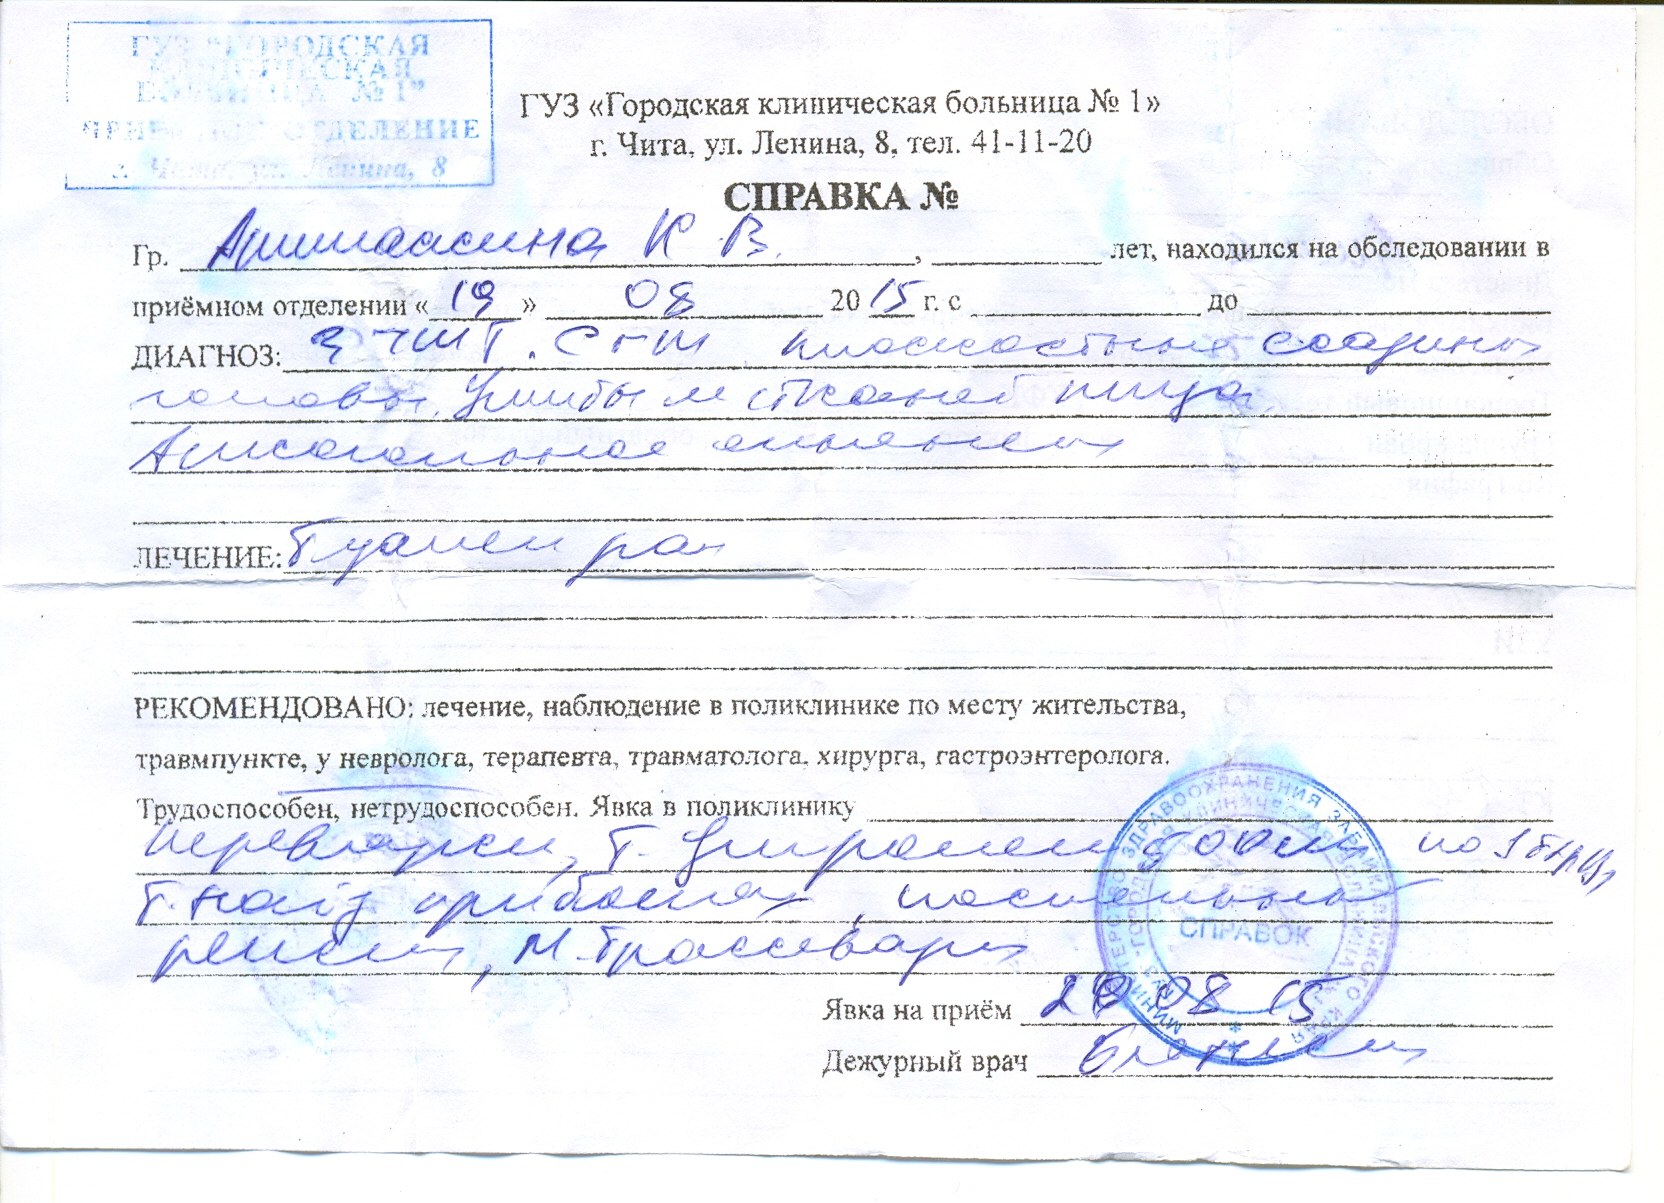 ГУЗ "ГОРОДСКАЯ
КЛИНИЧЕСКАЯ
БОЛЬНИЦА № 1"
ПРИЕМНОЕ ОТДЕЛЕНИЕ
г. Чита, ул. Ленина, 8
ГУЗ «Городская клиническая больница № 1»
г. Чита, ул. Ленина, 8, тел. 41-11-20
СПРАВКА №
Гр. К В. , лет, находился на обследовании в
приёмном отделении «19» 08 2015 г. с до
ДИАГНОЗ: ЗЧМТ. СГМ плоскостные ссадины
головы. Ушибы м тканей лица
Алкогольное опьянение
ЛЕЧЕНИЕ: Туалет ран
РЕКОМЕНДОВАНО: лечение, наблюдение в поликлинике по месту жительства,
травмпункте, у невролога, терапевта, травматолога, хирурга, гастроэнтеролога.
Трудоспособен, нетрудоспособен. Явка в поликлинику
Перевязки, по 1
постельный
режим,
Явка на приём 20 08 15
Дежурный врач
МИНИСТЕРСТВО ЗДРАВООХРАНЕНИЯ ЗАБАЙКАЛЬСКОГО КРАЯ
СПРАВОК